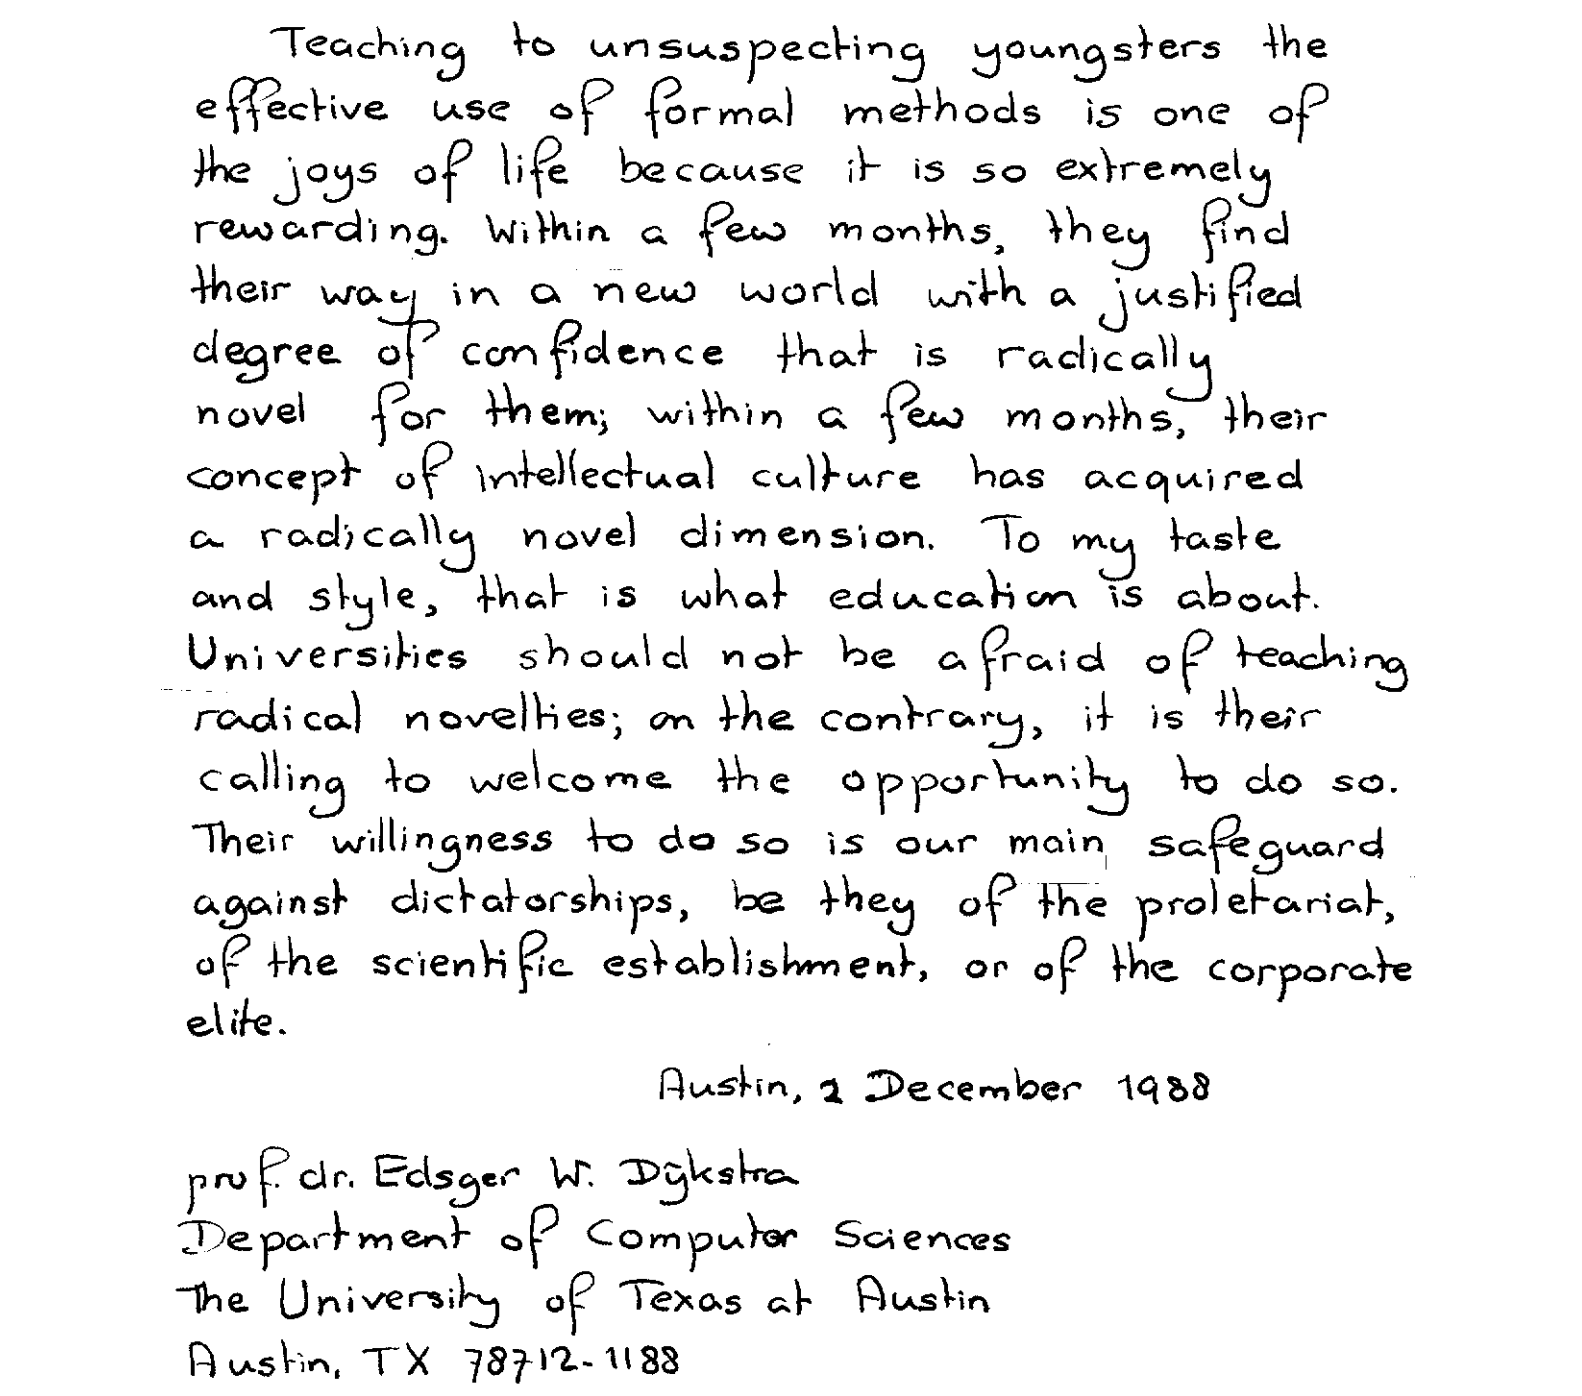 Teaching to unsuspecting youngsters the
effective use of formal methods is one of
the joys of life because it is so extremely
rewarding. Within a few months, they find
their way in a new world with a justified
degree of confidence that is radically
novel for them; within a few months, their
concept of intellectual culture has acquired
a radically novel dimension. To my taste
and style, that is what education is about.
Universities should not be afraid of teaching
radical novelties; on the contrary, it is their
calling to welcome the opportunity to do so.
Their willingness to do so is our main safeguard
against dictatorships, be they of the proletariat,
of the scientific establishment, or of the corporate
elite.
Austin, 2 December 1988
prof. dr. Edsger W. Dijkstra
Department of Computer Sciences
The University of Texas at Austin
Austin, TX 78712-1188